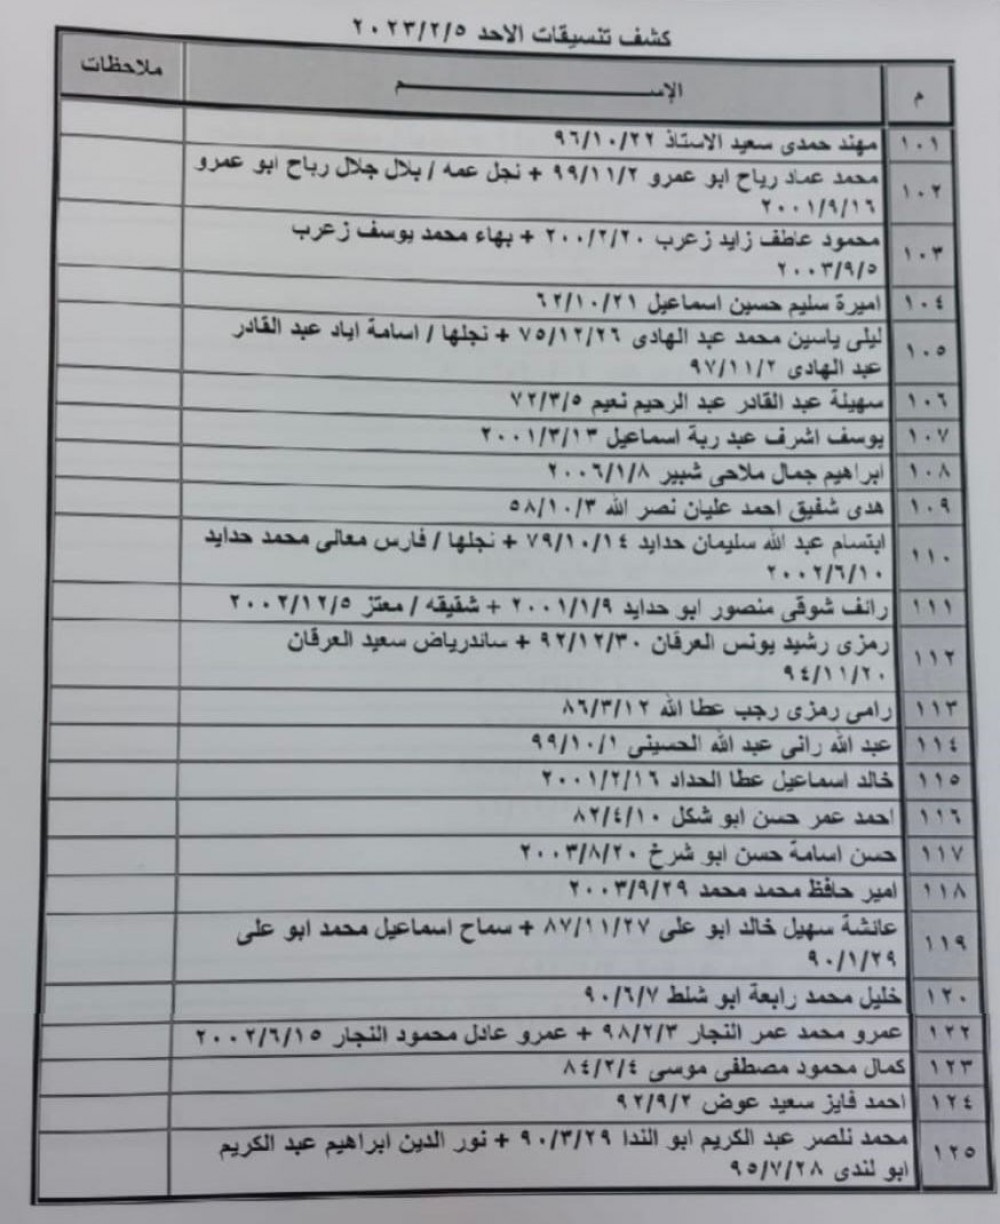 كشف تنسيقات الاحد ٢٠٢٣/٢/٥
م الإســـــــــم ملاحظات
١٠١ مهند حمدى سعيد الاستاذ ٩٦/١٠/٢٢
١٠٢ محمد عماد رياح ابو عمرو ٩٩/١١/٢ + نجل عمه / بلال جلال رباح ابو عمرو
٢٠٠١/٩/١٦
١٠٣ محمود عاطف زايد زعرب ٢٠٠/٢/٢٠ + بهاء محمد يوسف زعرب
٢٠٠٣/٩/٥
١٠٤ اميرة سليم حسين اسماعيل ٦٢/١٠/٢١
١٠٥ ليلى ياسين محمد عبد الهادى ٧٥/١٢/٢٦ + نجلها / اسامة اياد عبد القادر
عبد الهادى ٩٧/١١/٢
١٠٦ سهيلة عبد القادر عبد الرحيم نعيم ٧٢/٣/٥
١٠٧ يوسف اشرف عبد ربة اسماعيل ٢٠٠١/٣/١٣
١٠٨ ابراهيم جمال ملاحى شبير ٢٠٠٦/١/٨
١٠٩ هدى شفيق احمد عليان نصر الله ٥٨/١٠/٣
١١٠ ابتسام عبد الله سليمان حدايد ٧٩/١٠/١٤ + نجلها / فارس معالى محمد حدايد
٢٠٠٢/٦/١٠
١١١ رائف شوقى منصور ابو حدايد ٢٠٠١/١/٩ + شقيقه / معتز ٢٠٠٢/١٢/٥
١١٢ رمزى رشيد يونس العرقان ٩٢/١٢/٣٠ + ساندرياض سعيد العرقان
٩٤/١١/٢٠
١١٣ رامى رمزى رجب عطا الله ٨٦/٣/١٢
١١٤ عبد الله رانى عبد الله الحسينى ٩٩/١٠/١
١١٥ خالد اسماعيل عطا الحداد ٢٠٠١/٢/١٦
١١٦ احمد عمر حسن ابو شكل ٨٢/٤/١٠
١١٧ حسن اسامة حسن ابو شرخ ٢٠٠٣/٨/٢٠
١١٨ امير حافظ محمد محمد ٢٠٠٣/٩/٢٩
١١٩ عائشة سهيل خالد ابو على ٨٧/١١/٢٧ + سماح اسماعيل محمد ابو على
٩٠/١/٢٩
١٢٠ خليل محمد رابعة ابو شلط ٩٠/٦/٧
١٢٢ عمرو محمد عمر النجار ٩٨/٢/٣ + عمرو عادل محمود النجار ٢٠٠٢/٦/١٥
١٢٣ كمال محمود مصطفى موسى ٨٤/٢/٤
١٢٤ احمد فايز سعيد عوض ٩٢/٩/٢
١٢٥ محمد نلصر عبد الكريم ابو الندا ٩٠/٣/٢٩ + نور الدين ابراهيم عبد الكريم
ابو لندى ٩٥/٧/٢٨